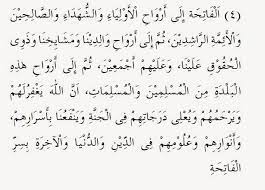 (٤) اَلْفَاتِحَةَ إِلَى أَرْوَاحِ الْأَوْلِيَاءِ وَالشُّهَدَاءِ وَالصَّالِحِيْنَ
وَالْأَئِمَّةِ الرَّاشِدِيْنَ، ثُمَّ إِلَى أَرْوَاحِ وَالِدِيْنَا وَمَشَايِخِنَا وَذَوِى
الْحُقُوْقِ عَلَيْنَا، وَعَلَيْهِمْ أَجْمَعِيْنَ، ثُمَّ إِلَى أَرْوَاحِ أَمْوَاتِ هٰذِهِ
الْبَلْدَةِ مِنَ الْمُسْلِمِيْنَ وَالْمُسْلِمَاتِ، اَنَّ اللّٰهَ يَغْفِرُ لَهُمْ
وَيَرْحَمُهُمْ وَيُعْلِى دَرَجَاتِهِمْ فِى الْجَنَّةِ وَيَنْفَعُنَا بِأَسْرَارِهِمْ،
وَأَنْوَارِهِمْ وَعُلُوْمِهِمْ فِى الدِّيْنِ وَالدُّنْيَا وَالْآخِرَةِ بِسِرِّ
الْفَاتِحَةِ